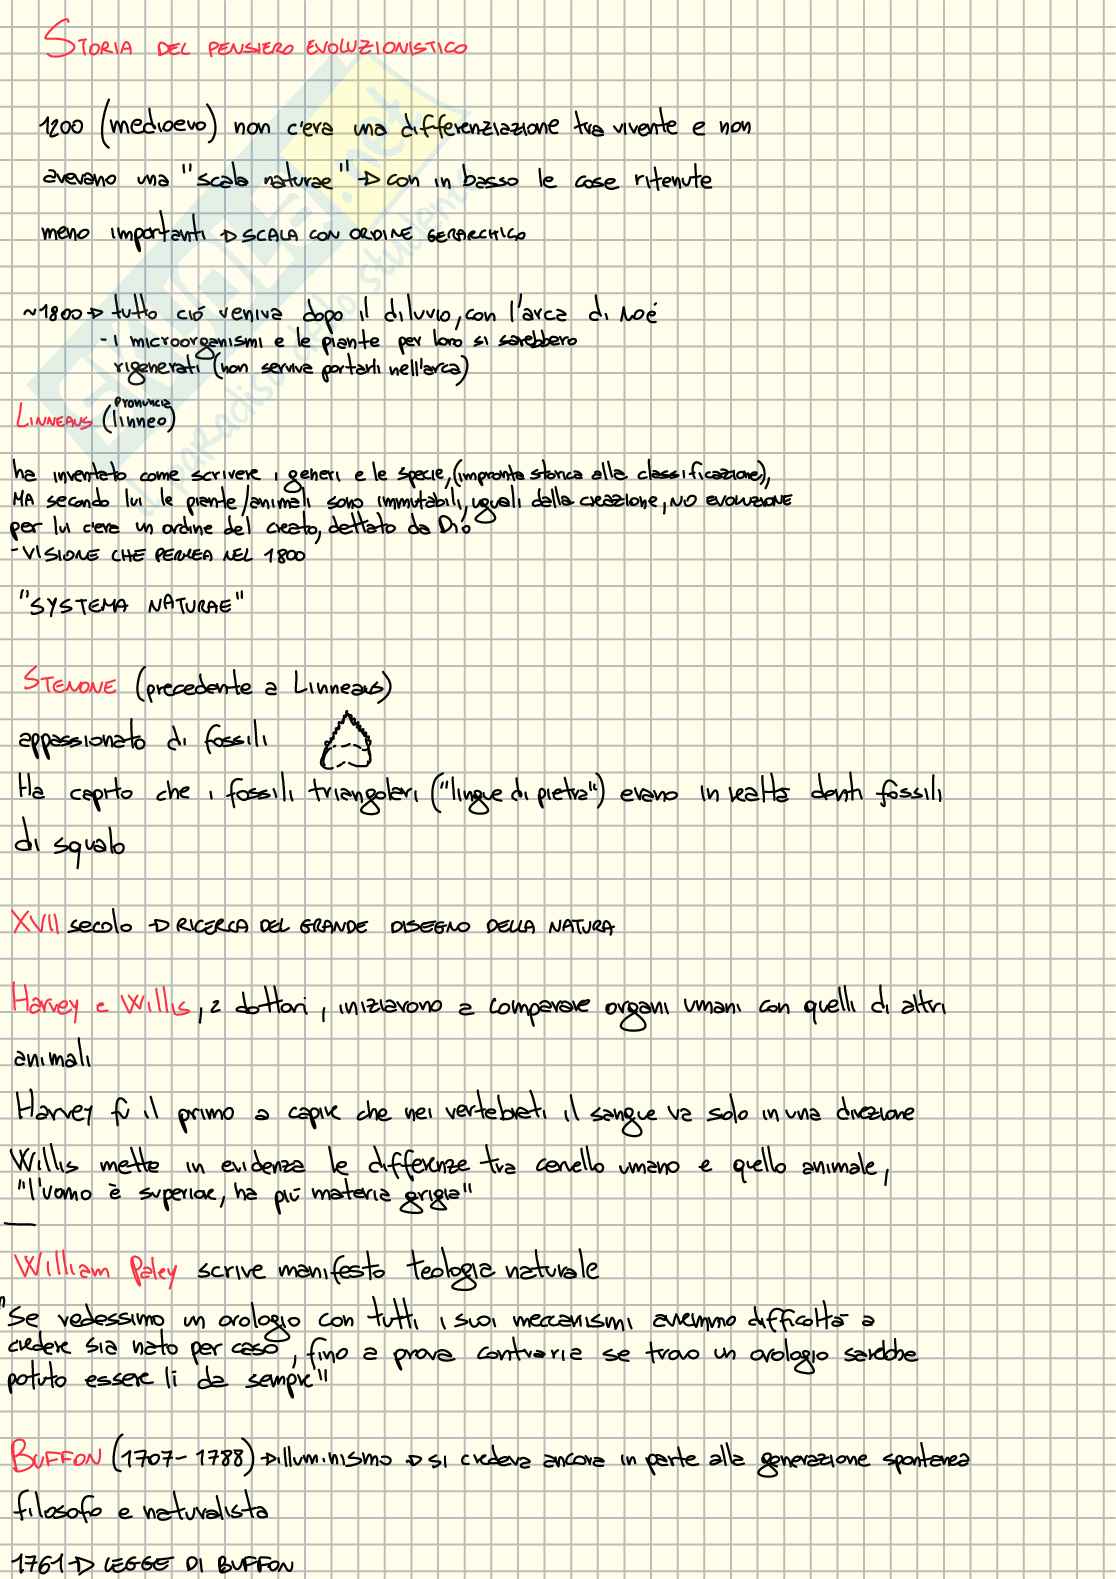 STORIA DEL PENSIERO EVOLUZIONISTICO
1200 (medioevo) non c'era una differenziazione tra vivente e non
avevano una "scala naturae" → con in basso le cose ritenute
meno importanti → SCALA CON ORDINE GERARCHICO
~1800 → tutto ciò veniva dopo il diluvio, con l'arca di Noé
- i microorganismi e le piante per loro si sarebbero
rigenerati (non serviva portarli nell'arca)
Pronuncia
LINNEAUS (linneo)
ha inventato come scrivere i generi e le specie, (impronta storica alla classificazione),
MA secondo lui le piante/animali sono immutabili, uguali dalla creazione, NO EVOLUZIONE
per lui c'era un ordine del creato, dettato da Dio
- VISIONE CHE PERMEA NEL 1800
"SYSTEMA NATURAE"
STENONE (precedente a Linneaus)
appassionato di fossili
Ha capito che i fossili triangolari ("lingue di pietra") erano in realtà denti fossili
di squalo
XVII secolo → RICERCA DEL GRANDE DISEGNO DELLA NATURA
Harvey e Willis, 2 dottori, iniziavono a comparare organi umani con quelli di altri
animali
Harvey fu il primo a capire che nei vertebrati il sangue va solo in una direzione
Willis mette in evidenza le differenze tra cervello umano e quello animale,
"l'uomo è superiore, ha più materia grigia"
William Paley scrive manifesto teologia naturale
"Se vedessimo un orologio con tutti i suoi meccanismi avremmo difficoltà a
credere sia nato per caso, fino a prova contraria se trovo un orologio sarebbe
potuto essere lì da sempre"
BUFFON (1707-1788) → illuminismo → si credeva ancora in parte alla generazione spontanea
filosofo e naturalista
1761 → LEGGE DI BUFFON